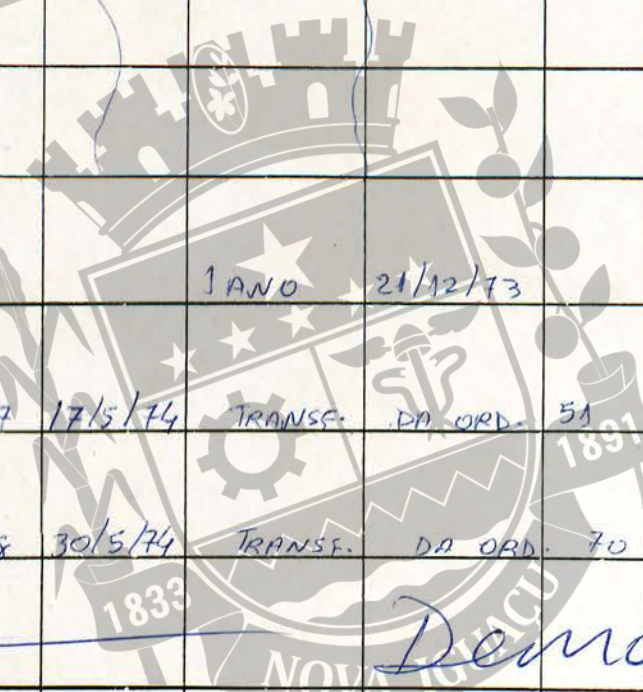 1 ANO 21/12/73
7 17/5/74 TRANSF. DA ORD. 51
1891
8 30/5/74 TRANSF. DA ORD. 70
1833
NOVA IGUAÇU